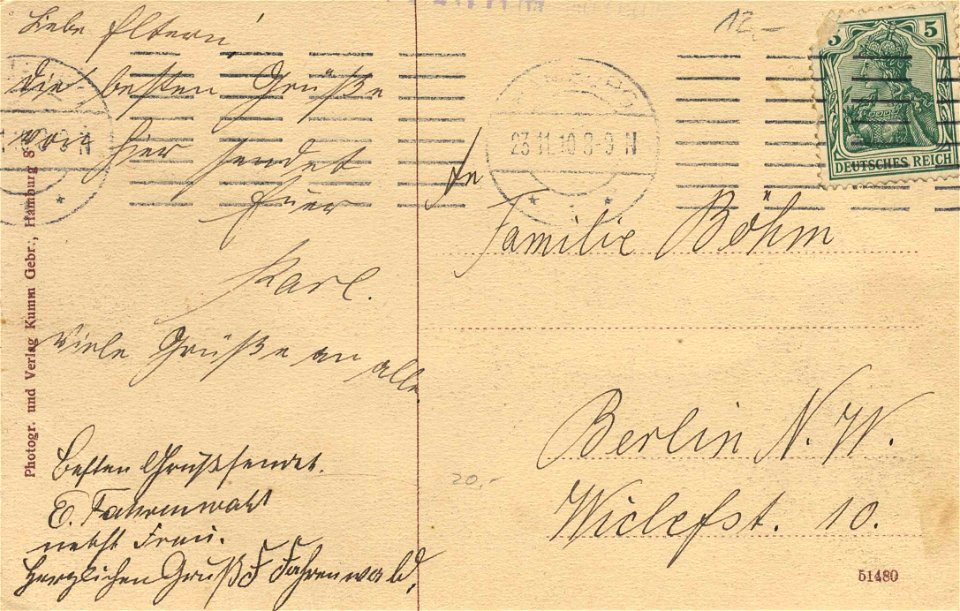 Liebe Eltern,
die besten Grüße
von hier sendet
Euer
Karl.
Viele Grüße an alle.
Besten Gruß sendet.
E. Fahrenwald
nebst Frau.
Herzlichen Gruß F Fahrenwald,
Photogr. und Verlag Kumm Gebr., Hamburg
12,-
5 5
DEUTSCHES REICH
23.11.10 8-9 N
An
Familie Böhm
Berlin N. W.
Wiclefst. 10.
20,-
51480